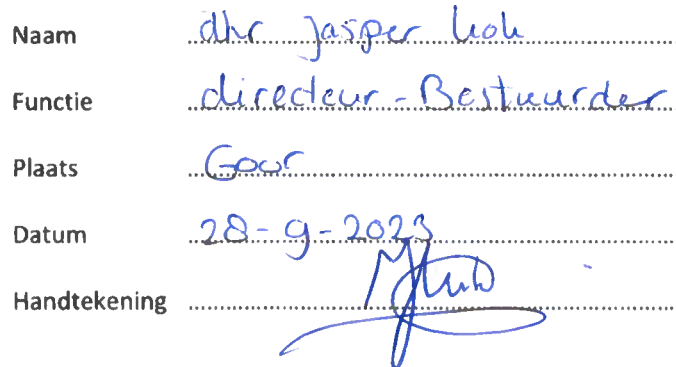 Naam dhr Jasper Kok
Functie directeur-Bestuurder
Plaats Goor
Datum 28-9-2023
Handtekening